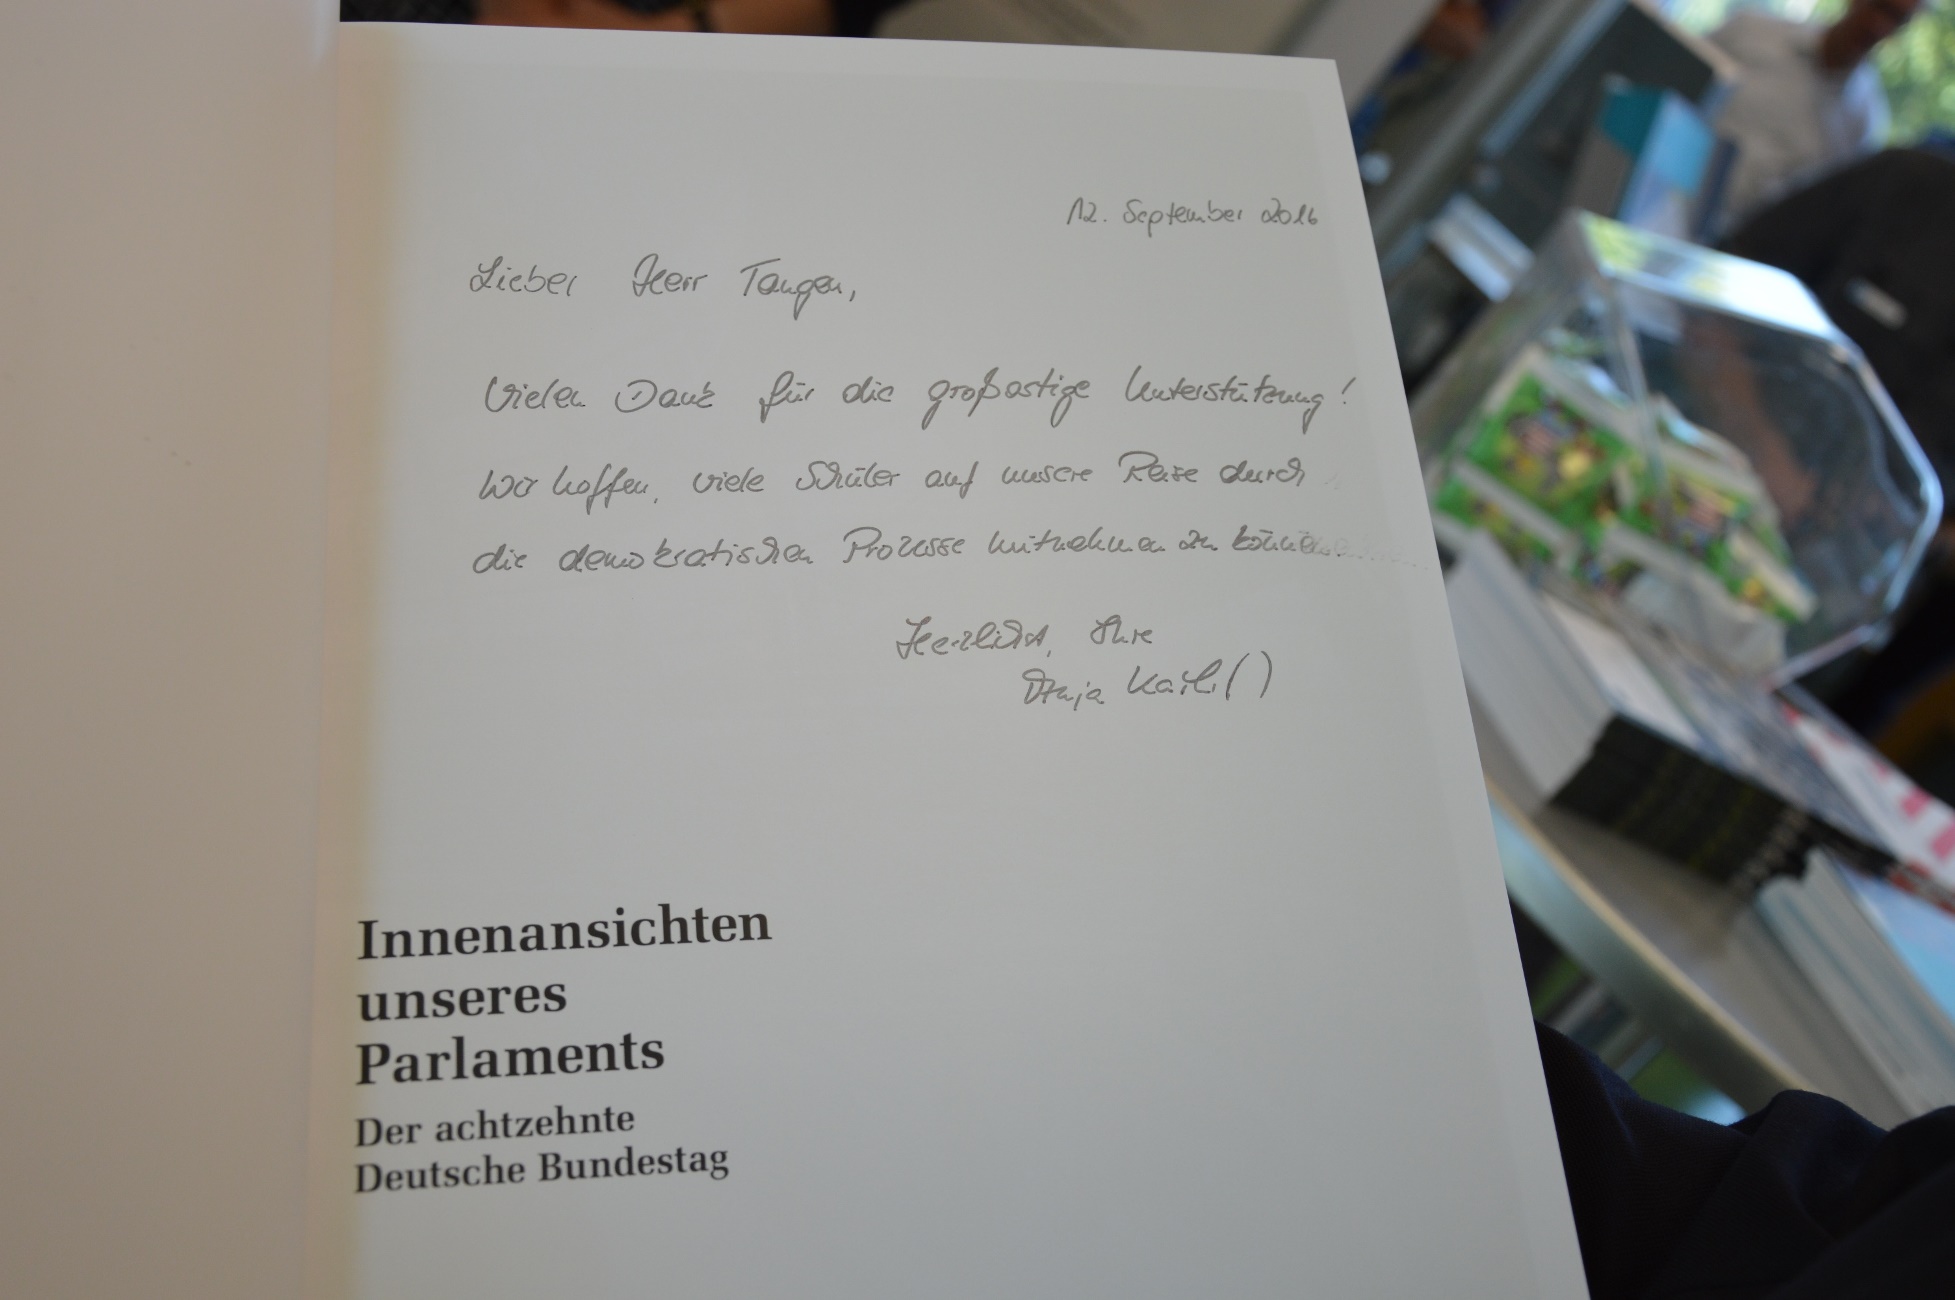 12. September 2016
Lieber Herr Tangen,
Vielen Dank für die großartige Unterstützung!
Wir hoffen, viele Schüler auf unsere Reise durch
die demokratischen Prozesse mitnehmen zu können
Herzlichst, Ihre
Innenansichten
unseres
Parlaments
Der achtzehnte
Deutsche Bundestag